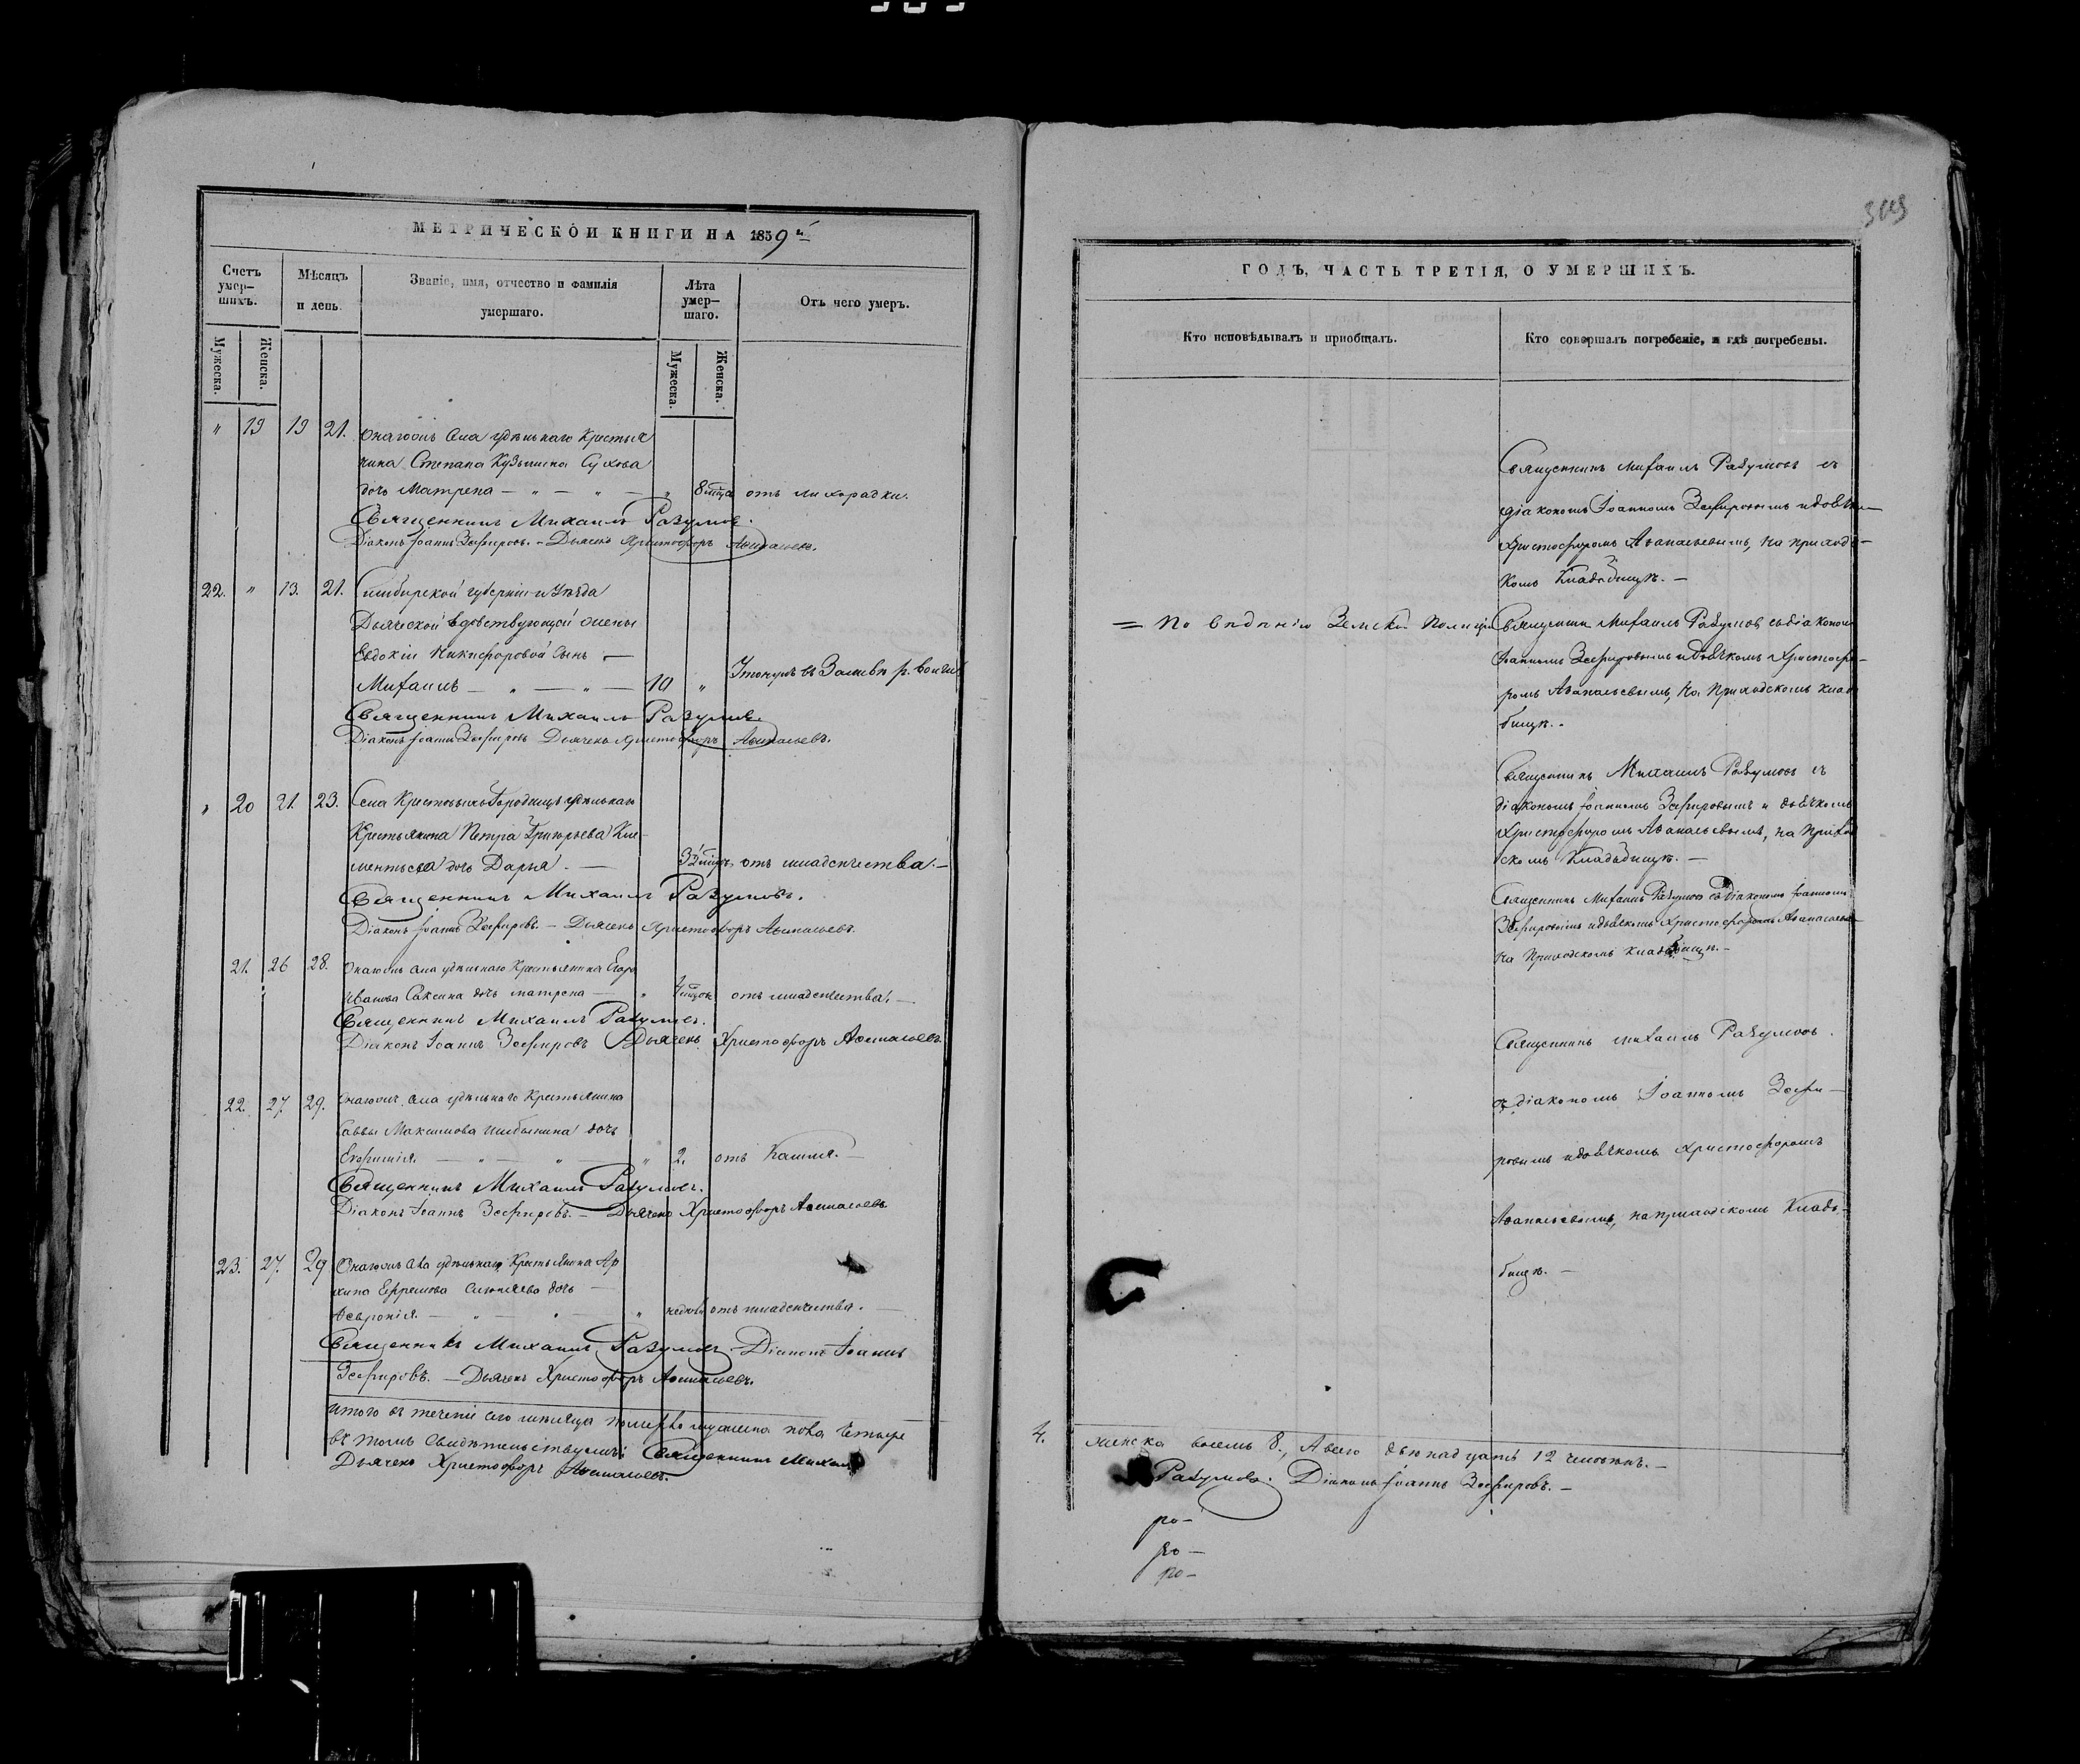 МЕТРИЧЕСКОЙ КНИГИ НА 1859й
Счетъ умер-
шихъ.
Мѣсяцъ
и день
Званіе, имя, отчество и фамилія
умершаго.
Лѣта
умер-
шаго.
Отъ чего умеръ.
Мужеска.
Женска.
Мужеска.
Женска.
" 19 19 21. Онагожъ села удѣльнаго Крестья
нина Степана Кузьмина Сухова
дочь Матрена — " — " — " 8 мѣца отъ лихорадки.
Священникъ Михаилъ Разумовъ.
Діаконъ Іоаннъ Зефировъ. – Дьячекъ Христофоръ Аѳанасьевъ.
22. " 13. 21. Симбирской губерніи и уѣзда
Дьяческой вдовствующей жены
Евдокіи Никифоровой сынъ —
Михаилъ — " — " — 10 " Утонулъ въ Заливѣ р. Волги
Священникъ Михаилъ Разумовъ.
Діаконъ Іоаннъ Зефировъ Дьячекъ Христофоръ Аѳанасьевъ.
" 20 21. 23. Села Крестовыхъ Городищъ удѣльнаго
Крестьянина Петра Григорьева Кле-
ментьева дочь Дарья. — отъ младенчества. –
Священникъ Михаилъ Разумовъ.
Діаконъ Іоаннъ Зефировъ. – Дьячекъ Христофоръ Аѳанасьевъ.
21. 26 28. Онагожъ села удѣльнаго Крестьянина Егора
Иванова Саксина дочь Матрена — " отъ младенчества. —
Священникъ Михаилъ Разумовъ.
Діаконъ Іоаннъ Зефировъ Дьячекъ Христофоръ Аѳанасьевъ
22. 27. 29. Онагожъ села удѣльнаго Крестьянина
Саввы Максимова дочь
— " — " — " 2. отъ Кашля. —
Священникъ Михаилъ Разумовъ.
Діаконъ Іоаннъ Зефировъ. – Дьячекъ Христофоръ Аѳанасьевъ
23. 27. 29 Онагожъ села удѣльнаго Крестьянина Ар
хипа Ефремова дочь —
Февронія. — " — " — " отъ младенчества. —
Священникъ Михаилъ Разумовъ. Діаконъ Іоаннъ
Зефировъ. — Дьячекъ Христофоръ Аѳанасьевъ.
Итого въ теченіи сего мѣсяца померло мужеска пола четыре
въ томъ свидѣтельствуемъ: Священникъ Михаилъ
Дьячекъ Христофоръ Аѳанасьевъ.
ГОДЪ, ЧАСТЬ ТРЕТІЯ, О УМЕРШИХЪ.
Кто исповѣдывалъ и пріобщалъ.
Кто совершалъ погребеніе, и гдѣ погребены.
Священникъ Михаилъ Разумовъ съ
діакономъ Іоанномъ Зефировымъ и дьячк—
Христофоромъ Аѳанасьевымъ, на приходс–
комъ Кладбищѣ. —
= По Земской Полиціи Священникъ Михаилъ Разумовъ съ діакономъ
Іоанномъ Зефировымъ и дьячкомъ Христофо–
ромъ Аѳанасьевымъ, на Приходскомъ клад
бищѣ. –
Священникъ Михаилъ Разумовъ съ
діакономъ Іоанномъ Зефировымъ и дьячкомъ
Христофоромъ Аѳанасьевымъ, на Приход
скомъ Кладбищѣ. —
Священникъ Михаилъ Разумовъ съ Діакономъ Іоанномъ
Зефировымъ и дьячкомъ Христофоромъ Аѳанасьевымъ
на Приходскомъ кладбищѣ. –
Священникъ Михаилъ Разумовъ.
съ діакономъ Іоанномъ Зефи—
ровымъ и дьячкомъ Христофоромъ
Аѳанасьевымъ, на приходскомъ Клад–
бищѣ. —
4. женска восемь 8., А всего двѣнадцать 12 человѣкъ. —
Разумовъ. Діаконъ Іоаннъ Зефировъ. —
ро–
ро–
ро–